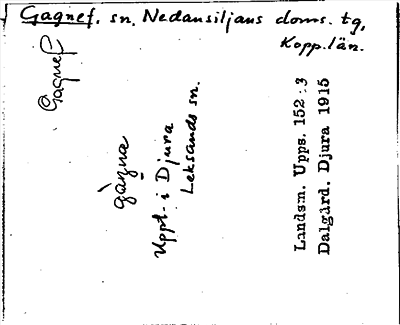 Gagnef. sn. Nedansiljans doms. tg,
Kopp. län.
Gagnef
gàgna
Uppt. i Djura
Leksands sn.
Landsm. Upps. 152:3
Dalgård. Djura 1915